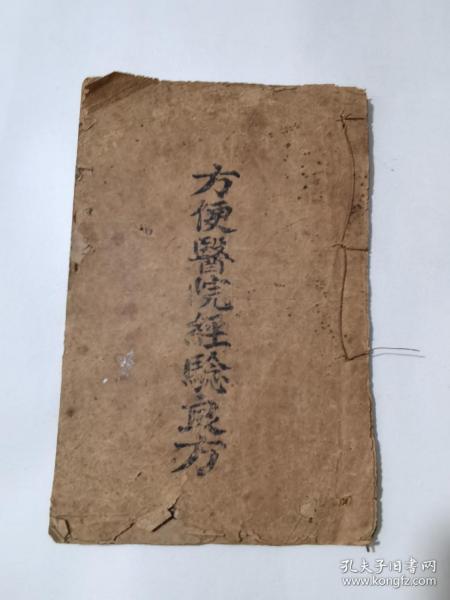 方便醫院經驗良方
孔夫子旧书网
www.kongfz.com